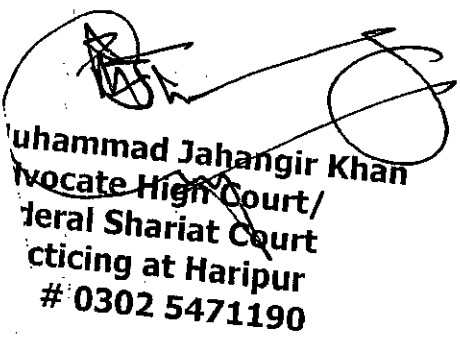 uhammad Jahangir Khan
vocate High Court/
deral Shariat Court
cticing at Haripur
# 0302 5471190